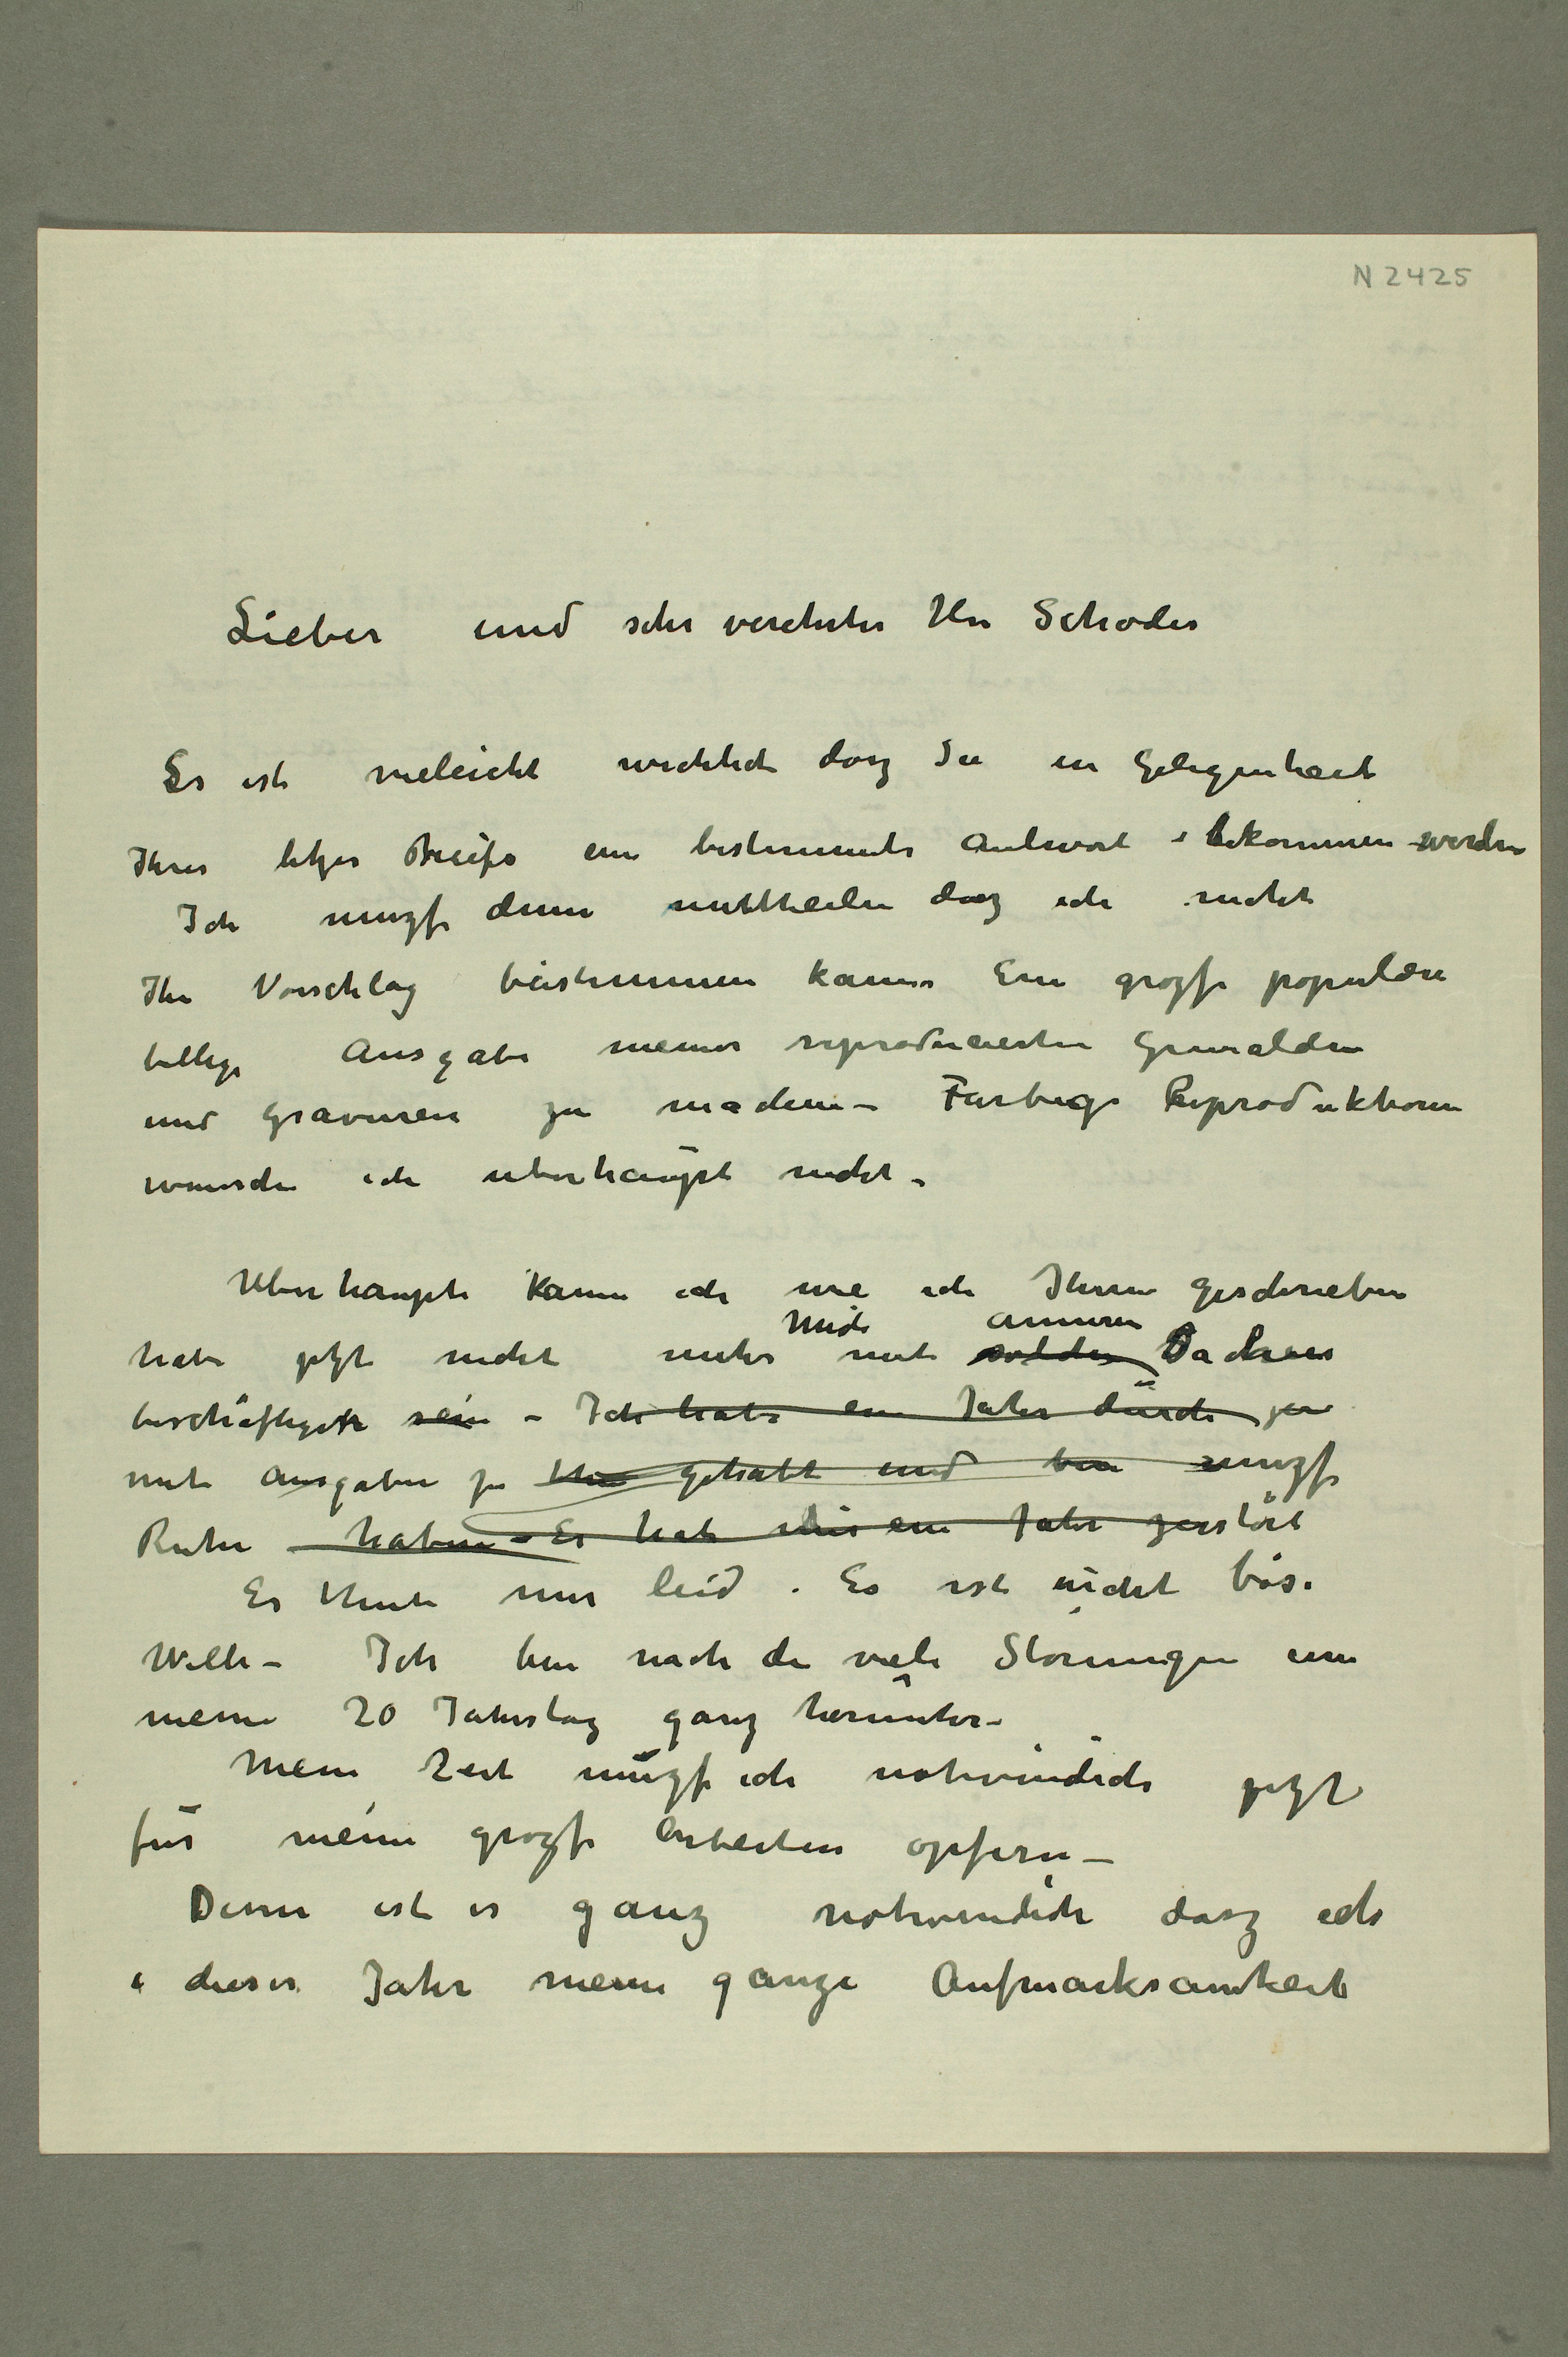 N 2425
Lieber und sehr verehrter Herr Schroder
Es ist vieleicht wichtich dasz Sie in Gelegenheit
Ihres letzes Briefs ein bestimmte Antwort bekommen werden
Ich muszs denn mittheilen dasz ich nicht
Ihr Vorschlag beistimmen kann. Ein groszse populäre
billige Ausgabe meiner reproducierten Gemälden
und Gravuren zu machen – Farbige Reproduktionen
wünsche ich überhaupt nicht –
Uberhaupt kann ich wie ich Ihnen geschrieben
mich anderen
habe jetzt nicht mehr mit solchen Sachen
beschäftigen sein – Ich habe ein Jahr durch zu
mit Ausgaben zu thun gehabt und bin muszs
Ruhe haben – Es hat mir ein Jahr zerstört
Es thut mir leid. Es ist nicht böse
Wille – Ich bin nach die viele Störungen um
meine 70 Jahrstag ganz herunter –
Mein Zeit muszs ich notwendich jetzt
für meine groszse Arbeiten opfern –
Denn ist es ganz notwendich dasz ich
i dieses Jahr meine ganze Aufmerksamkeit